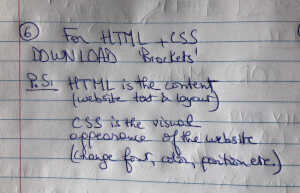 6 For HTML + CSS
DOWNLOAD 'Brackets'
P.S. HTML is the content
(website text & layout)
CSS is the visual
appearance of the website
(change font, color, position etc.)